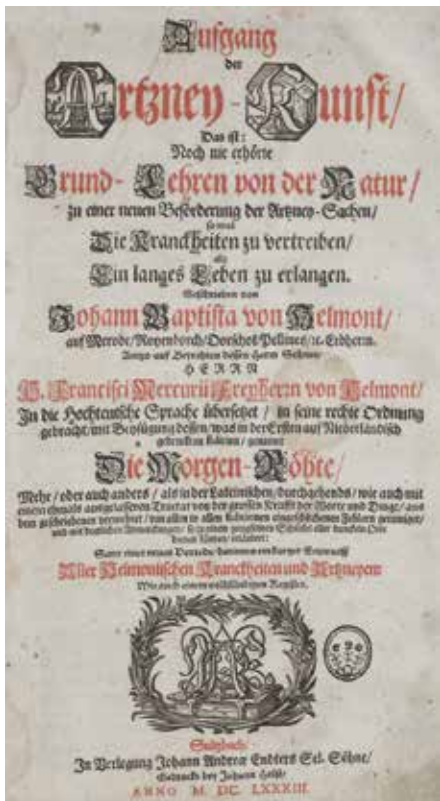 Aufgang
der
Artzney-Kunst/
Das ist:
Noch nie erhörte
Grund-Lehren von der Natur/
zu einer neuen Beförderung der Artzney-Sachen/
so wol
Die Kranckheiten zu vertreiben/
als
Ein langes Leben zu erlangen.
Geschrieben von
Johann Baptista von Helmont/
auf Merode/Royenborch/Oorschot/Pellines/ꝛc. Erbherrn.
Anitzo auf Beyrahten dessen Herrn Sohnes/
HERRN
H. Francisci Mercurii Freyherrn von Helmont/
In die Hochteutsche Sprache übersetzet / in seine rechte Ordnung
gebracht/mit Beyfügung dessen/was in der Ersten auf Niederländisch
gedruckten Edition/ genannt
Die Morgen-Röhte/
Mehr/ oder auch anders / als in der Lateinischen/ durchgehends/ wie auch mit
einem ehmals ausgelassenen Tractat von der grossen Krafft der Worte und Dinge/ aus
dem geschriebenen vermehret/ von allen in allen Editionen eingeschlichenen Fehlern gereiniget/
und mit
Samt einer neuen Vorrede
Aller Helmontischen Kranckheiten und Artzneyen:
Wie auch einem vollständigen Register.
Sultzbach/
In Verlegung Johann Andreæ Endters Sel. Söhne/
Gedruckt bey Johann Holst/
ANNO M. DC. LXXXIII.